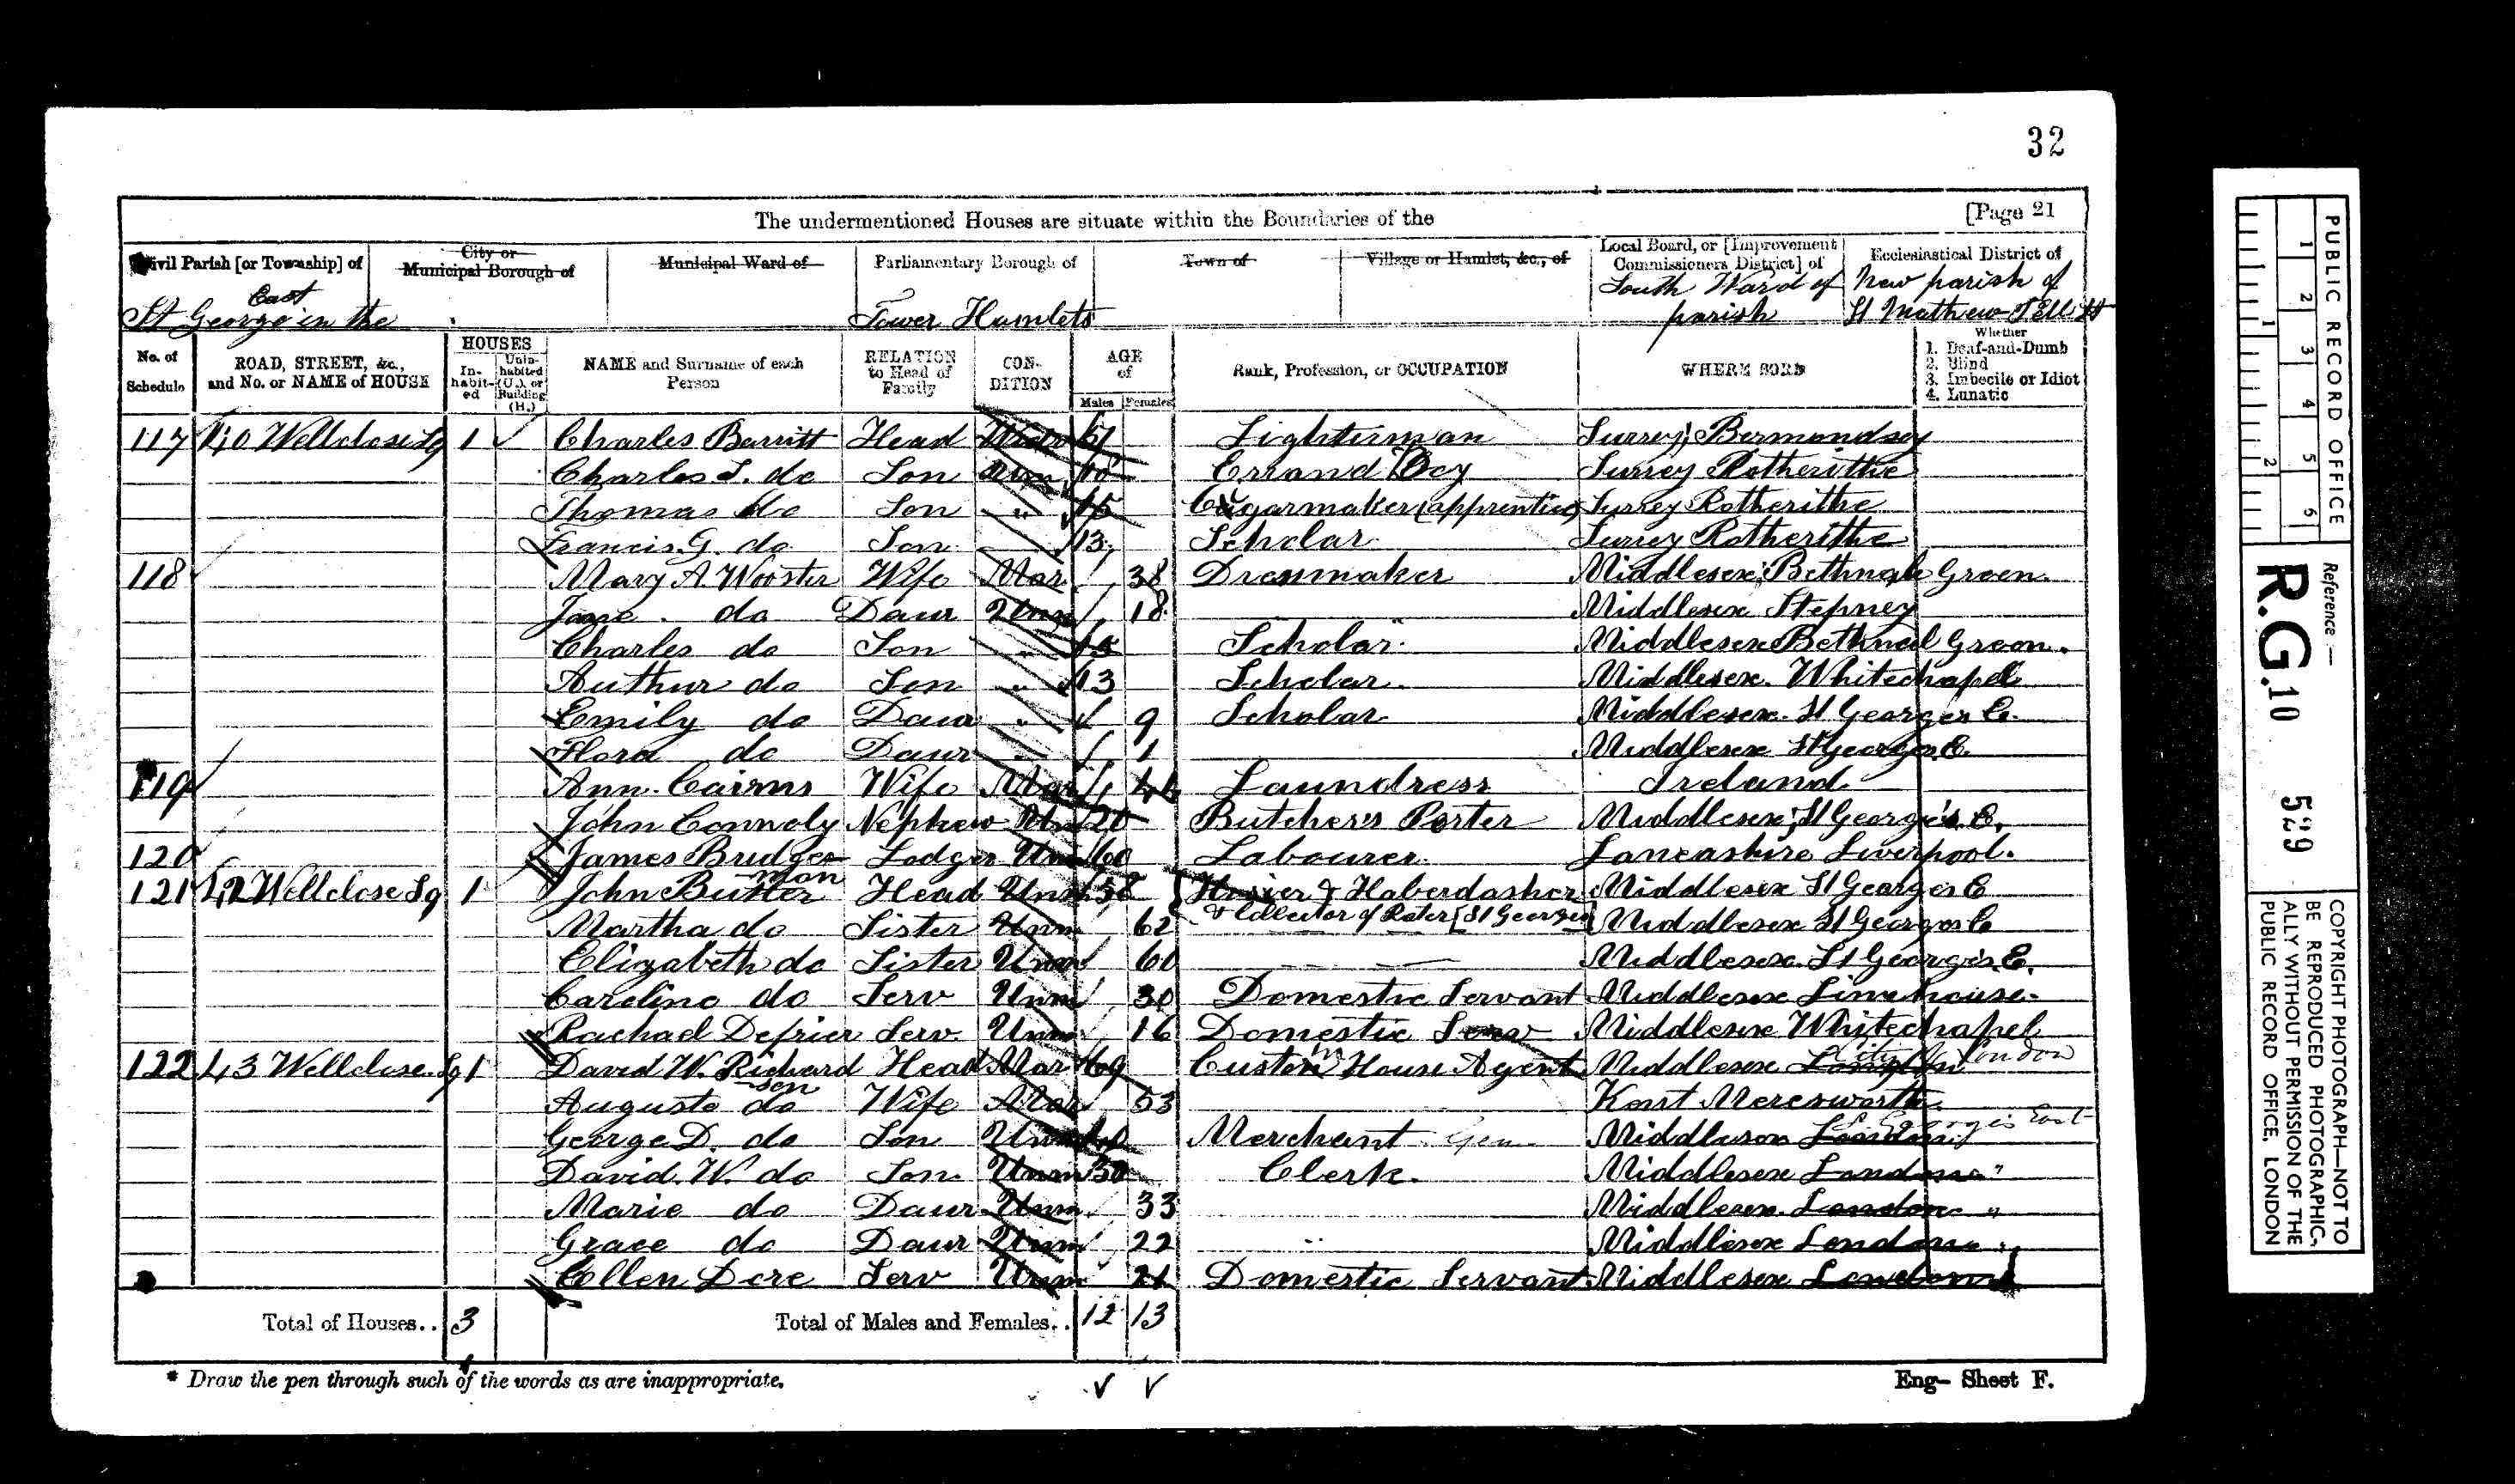 32
The undermentioned Houses are situate within the Boundaries of the [Page 21
Civil Parish [or Township] of City or Municipal Borough of Municipal Ward of Parliamentary Borough of Town of Village or Hamlet, &c., of Local Board, or [Improvement Commissioners District] of Ecclesiastical District of
St George in the East Tower Hamlets South Ward of parish New parish of St Mathew
No. of Schedule ROAD, STREET, &c., and No. or NAME of HOUSE HOUSES Inhabited Uninhabited (U.), or Building (B.) NAME and Surname of each Person RELATION to Head of Family CONDITION AGE of Males Females Rank, Profession, or OCCUPATION WHERE BORN Whether 1. Deaf-and-Dumb 2. Blind 3. Imbecile or Idiot 4. Lunatic
117 40 Wellclose Sq 1 Charles Barritt Head Lighterman Surrey, Bermondsey
Charles S. do Son Unm Errand Boy Surrey Rotherithe
Thomas do Son " 15 Cigarmaker (apprentice) Surrey Rotherithe
Francis G. do Son 13 Scholar Surrey Rotherithe
118 Mary A. Wooster Wife Mar 38 Dressmaker Middlesex, Bethnal Green
Jane do Daur Unm 18 Middlesex Stepney
Charles do Son " 15 Scholar Middlesex Bethnal Green.
Authur do Son " 13 Scholar Middlesex. Whitechapel
Emily do Daur " 9 Scholar Middlesex. St Georges E.
Flora do Daur 1 Middlesex St Georges E.
119 Ann Cairns Wife Mar 44 Laundress Ireland
John Connoly Nephew Unm 20 Butchers Porter Middlesex, St George's. E.
120 James Bridge Lodger Unm 60 Labourer Lancashire Liverpool.
121 42 Wellclose Sq 1 John Butterman Head Unm 58 Hosier & Haberdasher Middlesex St Georges E
& Collector of Rates [St Georges]
Martha do Sister Unm 62 Middlesex St Georges E
Elizabeth do Sister Unm 60 Middlesex. St George's. E.
Caroline do Serv Unm 30 Domestic Servant Middlesex Limehouse.
Rachael Defrier Serv. Unm 16 Domestic Serv Middlesex Whitechapel
122 43 Wellclose Sq 1 David W. Richardson Head Mar 69 Custom House Agent Middlesex London City of London
Augusta do Wife Mar 53 Kent Mereworth
George D. do Son Unm Merchant Gen Middlesex London St Georges East
David. W. do Son Unm 30 Clerk. Middlesex London "
Marie do Daur. Unm 33 Middlesex. London "
Grace do Daur Unm 22 Middlesex London "
Ellen Dere Serv Unm 21 Domestic Servant Middlesex London
Total of Houses.. 3 Total of Males and Females.. 12 13
* Draw the pen through such of the words as are inappropriate.
Eng- Sheet F.
PUBLIC RECORD OFFICE
1 2 3 4 5 6
1 2
Reference :—
R.G. 10 529
COPYRIGHT PHOTOGRAPH—NOT TO
BE REPRODUCED PHOTOGRAPHIC-
ALLY WITHOUT PERMISSION OF THE
PUBLIC RECORD OFFICE, LONDON